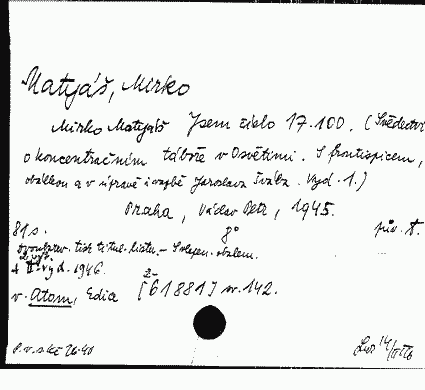 Matyáš, Mirko
Mirko Matyáš Jsem číslo 17.100. (Svědectví
o koncentračním táboře v Osvětimi. S frontispicem,
obálkou a v úpravě i vazbě Jaroslava Švába. Vyd. 1.)
Praha, Václav Petr, 1945.
81 s. 8° pův. 8.
Dvoubarev. tisk titul. listu. -
2 výt.
+ II. vyd. 1946.
v. Atom, Edice [2-61881] sv. 142.